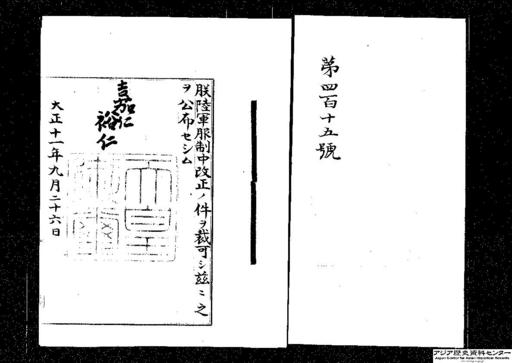 第四百十五號
朕陸軍服制中改正ノ件ヲ裁可シ茲ニ之
ヲ公布セシム
嘉仁
裕仁
大正十一年九月二十六日
アジア歴史資料センター
Japan Center for Asian Historical Records